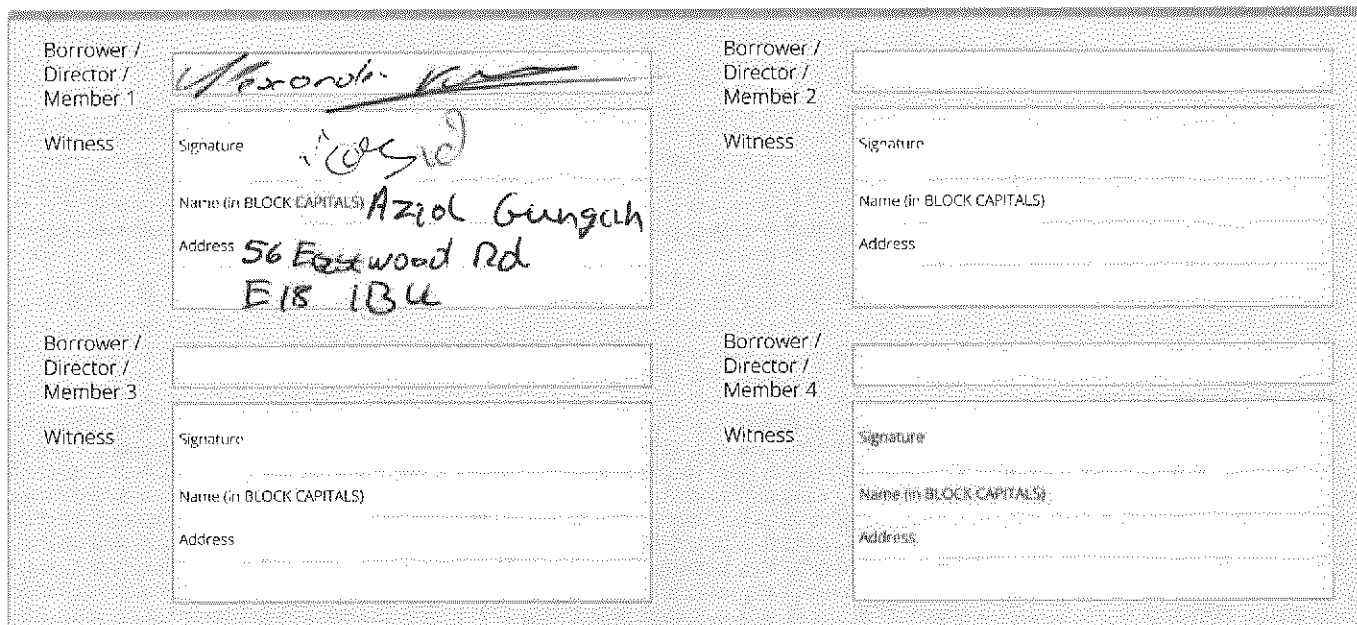 Borrower /
Director /
Member 1
Witness
Signature
Name (in BLOCK CAPITALS) Azid Gungah
Address 56 Eastwood Rd
E18 1BU
Borrower /
Director /
Member 2
Witness
Signature
Name (in BLOCK CAPITALS)
Address
Borrower /
Director /
Member 3
Witness
Signature
Name (in BLOCK CAPITALS)
Address
Borrower /
Director /
Member 4
Witness
Signature
Name (in BLOCK CAPITALS)
Address